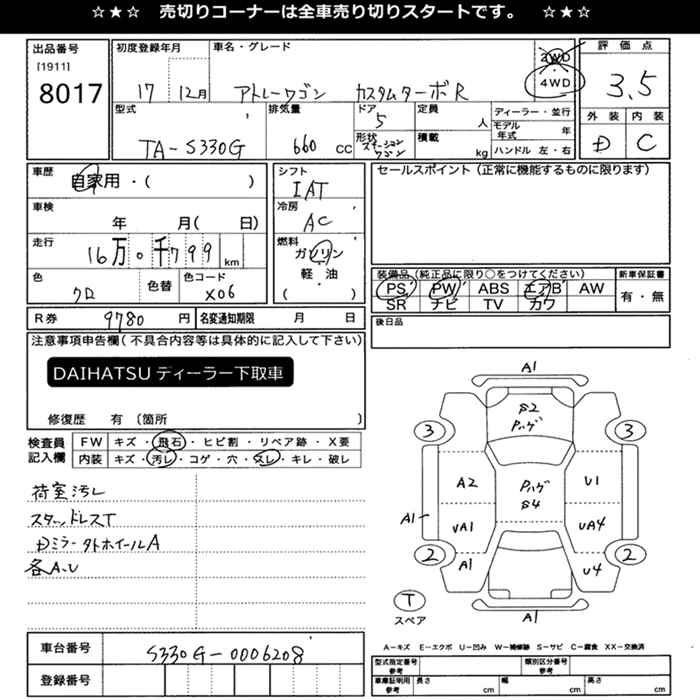 ☆★☆ 売切りコーナーは全車売り切りスタートです。 ☆★☆
出品番号
[1911]
8017
初度登録年月
17 12月
車名・グレード
アトレーワゴン カスタムターボR
2WD
・
4WD
評価点
3.5
外装 内装
D C
型式
TA-S330G
排気量
660 cc
ドア
5
形状
ステーションワゴン
定員
人
積載
kg
ディーラー・並行
モデル年式 年
ハンドル 左・右
車歴
自家用・( )
車検
年 月( 日)
走行
16万0千799 km
色
クロ
色替
色コード
X06
シフト
IAT
冷房
AC
燃料
ガソリン
軽・油
( )
セールスポイント (正常に機能するものに限ります)
装備品 (純正品に限り○をつけてください)
PS PW ABS エアB AW
SR ナビ TV カワ
新車保証書
有・無
R券 9780 円 名変通知期限 月 日
後日品
注意事項申告欄 (不具合内容等は具体的に記入して下さい)
DAIHATSU ディーラー下取車
修復歴 有 〔箇所 〕
検査員
記入欄
FW キズ・飛石・ヒビ割・リペア跡・X要
内装 キズ・汚レ・コゲ・穴・スレ・キレ・破レ
荷室汚レ
スタッドレスT
Dミラータトホイール A
各A.U
A1
S2
Pハゲ
3 3
A2
Pハゲ
S4
U1
A1
UA1
UA4
2 2
A1
U4
T
スペア
A1
A-キズ E-エクボ U-凹み W-補修跡 S-サビ C-腐食 XX-交換済
車台番号 S330G-0006208
登録番号
型式指定番号
参考
類別区分番号
参考
車庫証明用
参考
長さ cm 幅 cm 高さ cm